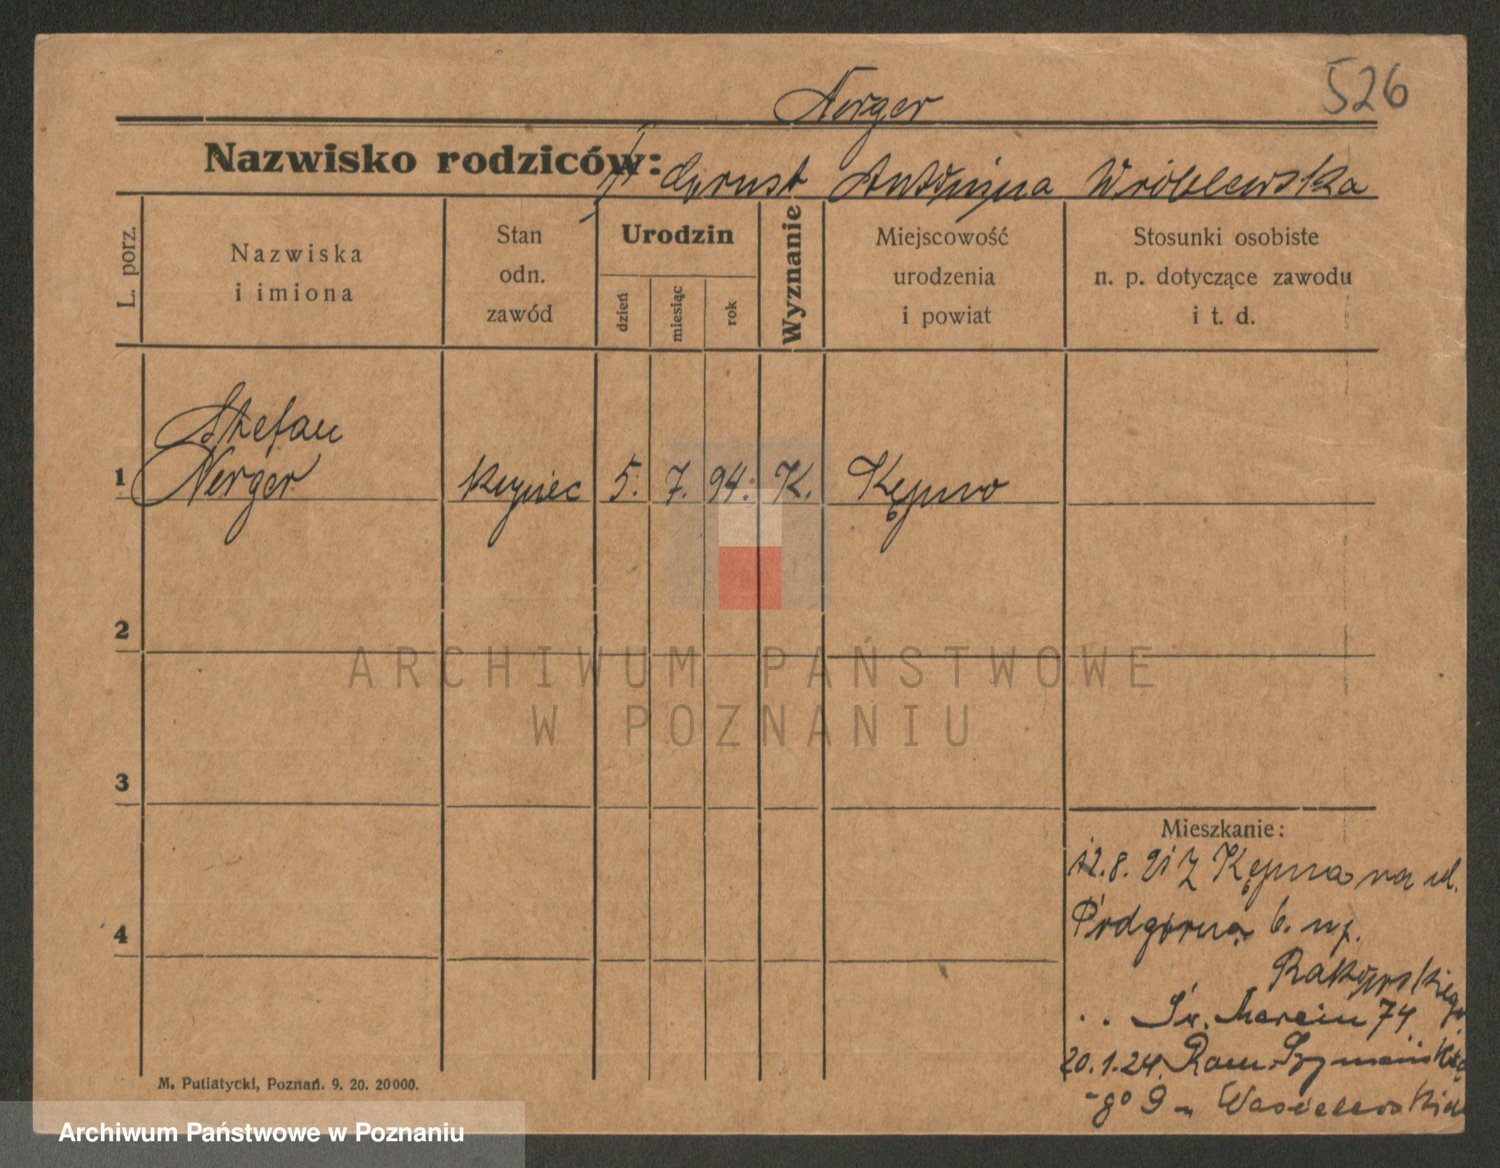 526
Nerger
Nazwisko rodziców: Ernst Antonina Wróblewska
L. porz.
Nazwiska
i imiona
Stan
odn.
zawód
Urodzin
dzień
miesiąc
rok
Wyznanie
Miejscowość
urodzenia
i powiat
Stosunki osobiste
n. p. dotyczące zawodu
i t. d.
Stefan
1 Nerger kupiec 5. 7. 94. K. Kępno
2
3
4
Mieszkanie:
12.8.21 Z Kępna na ul.
Podgórna 6.
Rakowskiego
. . Św. Marcin 74
20.1.24.
-go 9
M. Putiatycki, Poznań. 9. 20. 20000.
ARCHIWUM PAŃSTWOWE
W POZNANIU
Archiwum Państwowe w Poznaniu